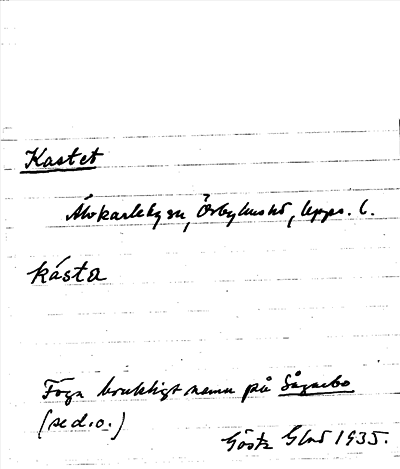 Kastet
Älvkarleby sn, Örbyhus hd, Upps. l.
kásta
Föga brukligt namn på Sågarbo
(se d.o.)
Gösta Glad 1935.